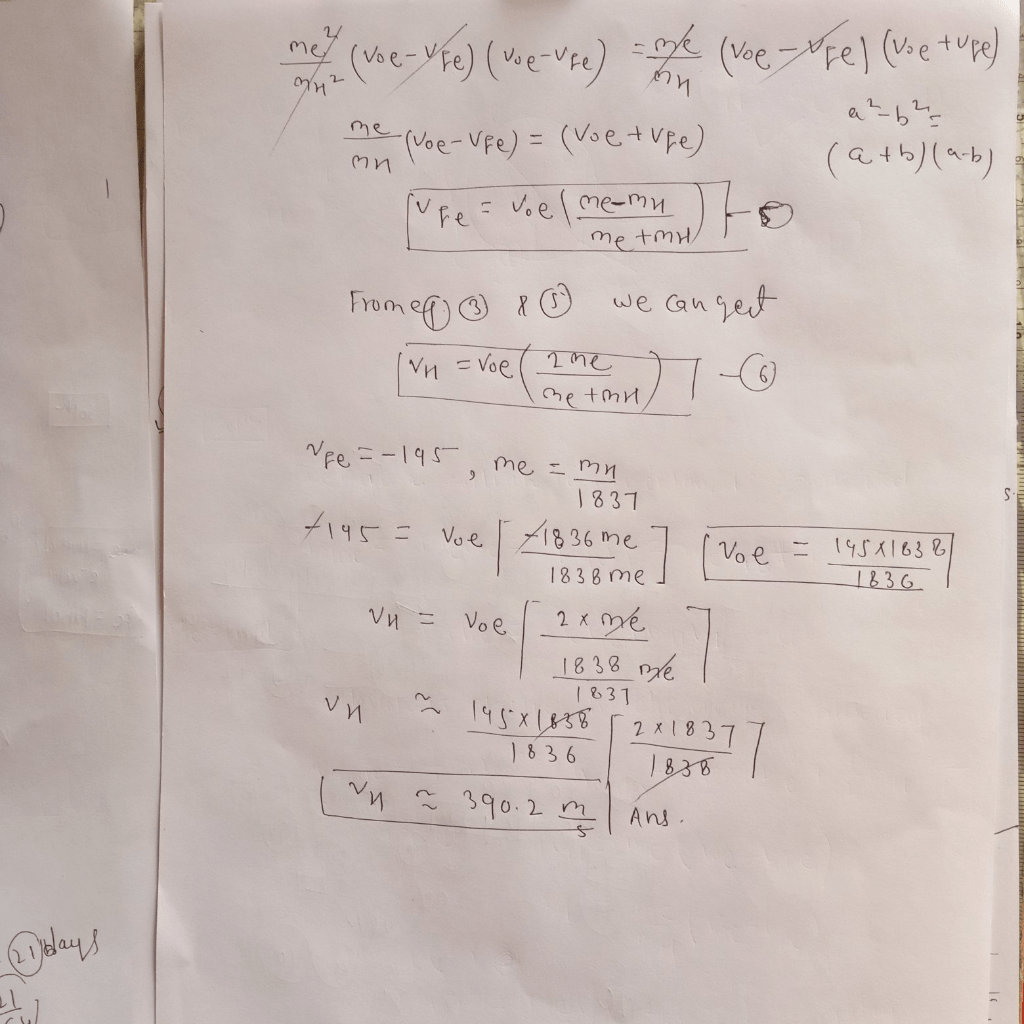 me²/mH² (Voe-VFe) (Voe-VFe) = me/mH (Voe-VFe) (Voe+VFe)
a²-b²=
me/mH (Voe-VFe) = (Voe+VFe)
(a+b)(a-b)
VFe = Voe (me-mH / me+mH) - 5
From eq 3 & 5 we can get
VH = Voe (2me / me+mH) - 6
VFe = -195, me = mH/1837
-195 = Voe [-1836me / 1838me]
Voe = 195x1838 / 1836
VH = Voe [2 x me / 1838 me/1837]
VH ≈ 195x1838/1836 [2x1837 / 1838]
VH ≈ 390.2 m/s Ans.
21 days
21